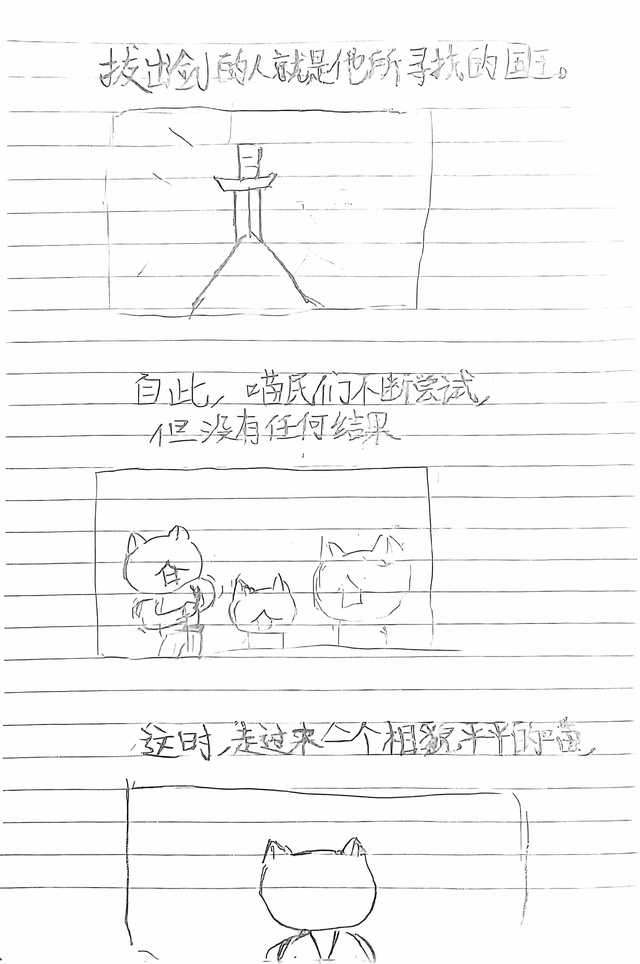 拔出剑的人就是他所寻找的国王。
自此，喵民们不断尝试，
但没有任何结果
这时，走过来一个相貌平平的喵，